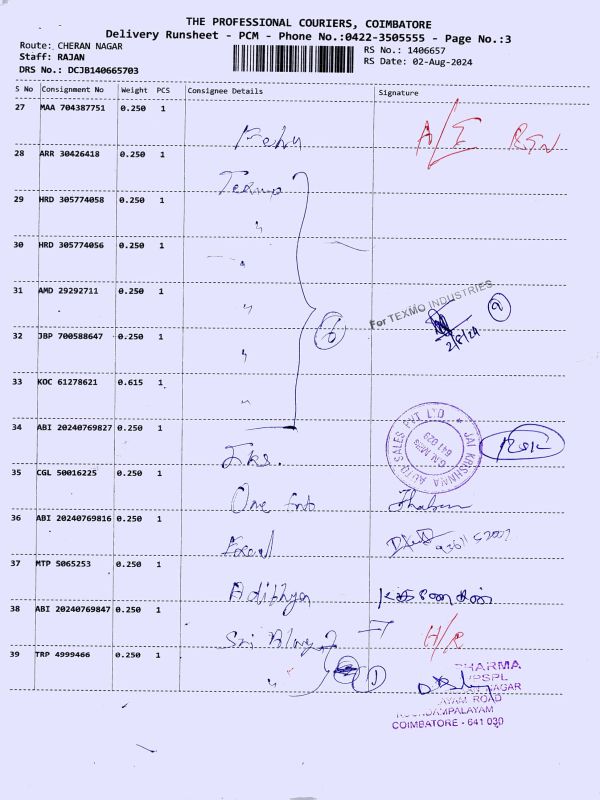 THE PROFESSIONAL COURIERS, COIMBATORE
Delivery Runsheet - PCM - Phone No.:0422-3505555 - Page No.:3
Route: CHERAN NAGAR
RS No.: 1406657
Staff: RAJAN
RS Date: 02-Aug-2024
DRS No.: DCJB140665703
S No Consignment No Weight PCS Consignee Details Signature
27 MAA 704387751 0.250 1
A/E RTN
28 ARR 30426418 0.250 1
Texmo
29 HRD 305774058 0.250 1
"
30 HRD 305774056 0.250 1
"
31 AMD 29292711 0.250 1
" For TEXMO INDUSTRIES
6
2/8/24
32 JBP 700588647 0.250 1
"
33 KOC 61278621 0.615 1
"
34 ABI 20240769827 0.250 1
Jks. JAI KRISHNAA AUTO SALES PVT LTD
G.N Mills
641 029
35 CGL 50016225 0.250 1
One
36 ABI 20240769816 0.250 1
Excel
37 MTP 5065253 0.250 1
Adithya
38 ABI 20240769847 0.250 1
Sri H/R
39 TRP 4999466 0.250 1
" 1
NAGAR
ROAD
COIMBATORE - 641 030